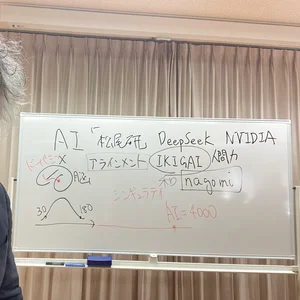 AI 「松尾研 DeepSeek NVIDIA
アラインメント IKIGAI 人間力
和 nagomi
シンギュラリティ
30 180 AI=4000